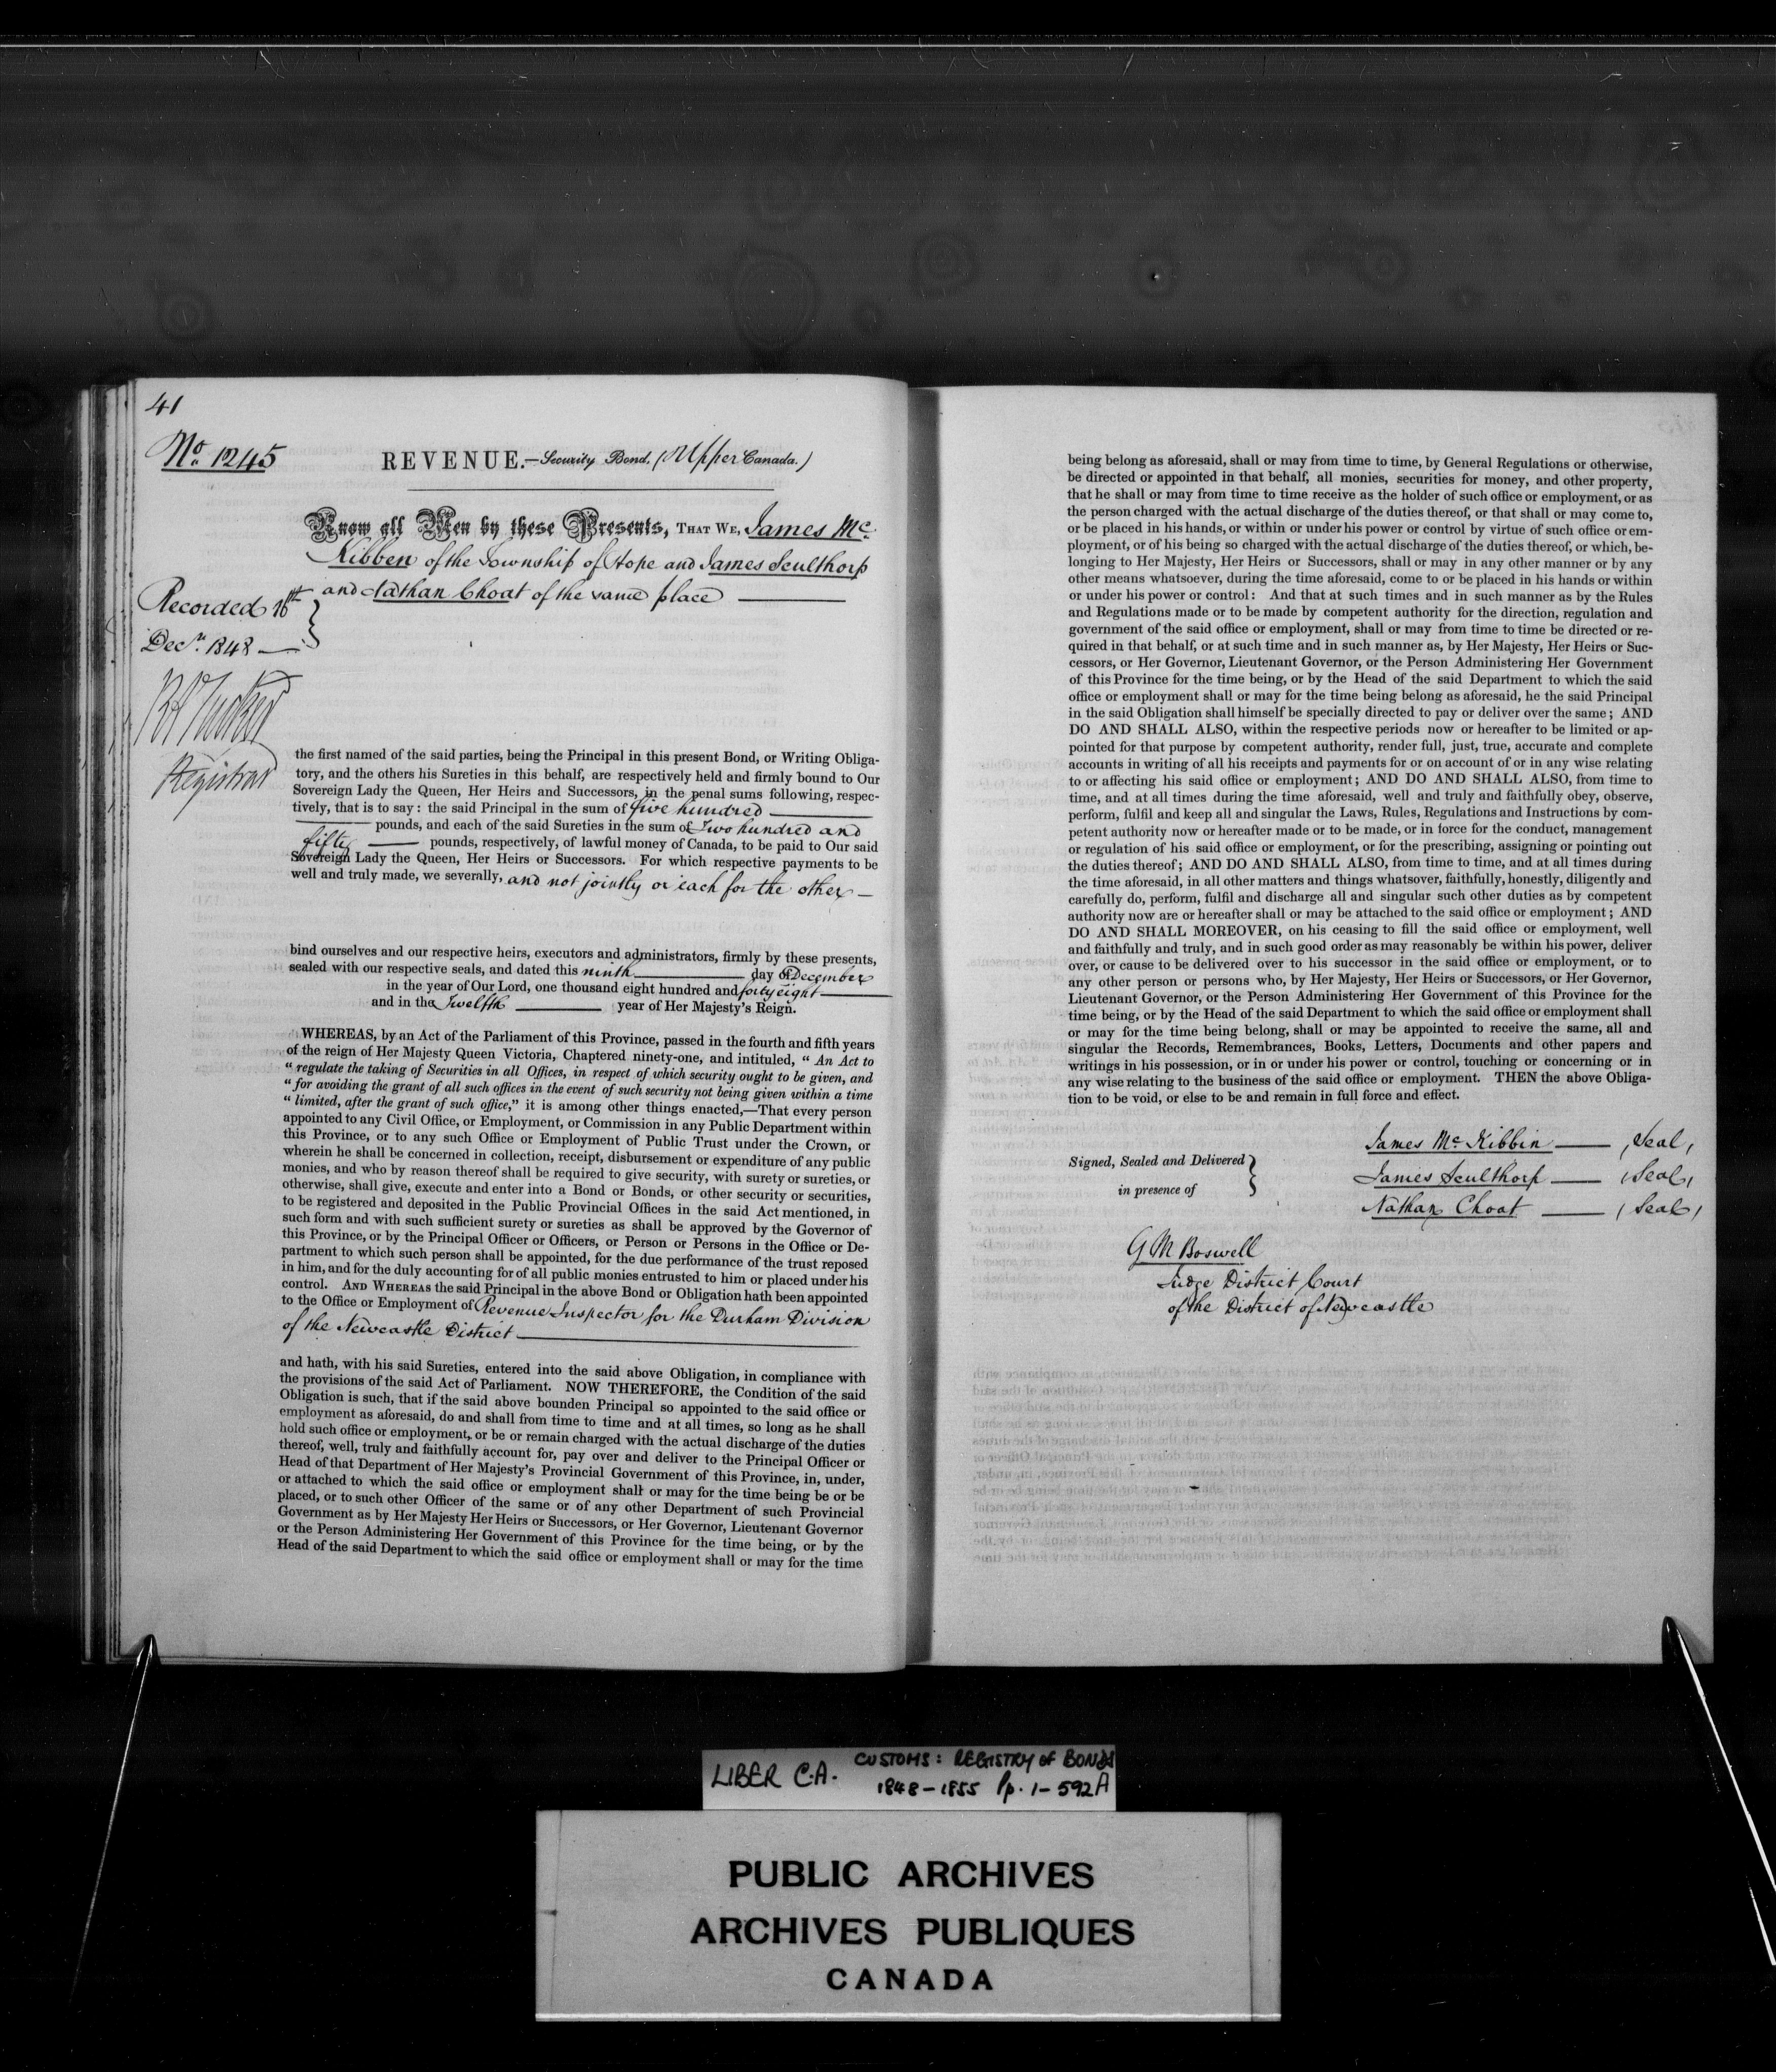 41
No. 1245
REVENUE.—Security Bond. (Upper Canada.)
Know all Men by these Presents, THAT WE, James Mc.
Kibben of the Township of Hope and James Sculthorp
and Nathan Choat of the same place
Recorded 16th
Decr. 1848
Registrar
the first named of the said parties, being the Principal in this present Bond, or Writing Obliga-
tory, and the others his Sureties in this behalf, are respectively held and firmly bound to Our
Sovereign Lady the Queen, Her Heirs and Successors, in the penal sums following, respec-
tively, that is to say: the said Principal in the sum of five hundred
pounds, and each of the said Sureties in the sum of Two hundred and
fifty pounds, respectively, of lawful money of Canada, to be paid to Our said
Sovereign Lady the Queen, Her Heirs or Successors. For which respective payments to be
well and truly made, we severally, and not jointly or each for the other —
bind ourselves and our respective heirs, executors and administrators, firmly by these presents,
sealed with our respective seals, and dated this ninth day of December
in the year of Our Lord, one thousand eight hundred and forty eight
and in the Twelfth year of Her Majesty's Reign.
WHEREAS, by an Act of the Parliament of this Province, passed in the fourth and fifth years
of the reign of Her Majesty Queen Victoria, Chaptered ninety-one, and intituled, " An Act to
" regulate the taking of Securities in all Offices, in respect of which security ought to be given, and
" for avoiding the grant of all such offices in the event of such security not being given within a time
" limited, after the grant of such office," it is among other things enacted,—That every person
appointed to any Civil Office, or Employment, or Commission in any Public Department within
this Province, or to any such Office or Employment of Public Trust under the Crown, or
wherein he shall be concerned in collection, receipt, disbursement or expenditure of any public
monies, and who by reason thereof shall be required to give security, with surety or sureties, or
otherwise, shall give, execute and enter into a Bond or Bonds, or other security or securities,
to be registered and deposited in the Public Provincial Offices in the said Act mentioned, in
such form and with such sufficient surety or sureties as shall be approved by the Governor of
this Province, or by the Principal Officer or Officers, or Person or Persons in the Office or De-
partment to which such person shall be appointed, for the due performance of the trust reposed
in him, and for the duly accounting for of all public monies entrusted to him or placed under his
control. AND WHEREAS the said Principal in the above Bond or Obligation hath been appointed
to the Office or Employment of Revenue Inspector for the Durham Division
of the Newcastle District
and hath, with his said Sureties, entered into the said above Obligation, in compliance with
the provisions of the said Act of Parliament. NOW THEREFORE, the Condition of the said
Obligation is such, that if the said above bounden Principal so appointed to the said office or
employment as aforesaid, do and shall from time to time and at all times, so long as he shall
hold such office or employment, or be or remain charged with the actual discharge of the duties
thereof, well, truly and faithfully account for, pay over and deliver to the Principal Officer or
Head of that Department of Her Majesty's Provincial Government of this Province, in, under,
or attached to which the said office or employment shall or may for the time being be or be
placed, or to such other Officer of the same or of any other Department of such Provincial
Government as by Her Majesty Her Heirs or Successors, or Her Governor, Lieutenant Governor
or the Person Administering Her Government of this Province for the time being, or by the
Head of the said Department to which the said office or employment shall or may for the time
being belong as aforesaid, shall or may from time to time, by General Regulations or otherwise,
be directed or appointed in that behalf, all monies, securities for money, and other property,
that he shall or may from time to time receive as the holder of such office or employment, or as
the person charged with the actual discharge of the duties thereof, or that shall or may come to,
or be placed in his hands, or within or under his power or control by virtue of such office or em-
ployment, or of his being so charged with the actual discharge of the duties thereof, or which, be-
longing to Her Majesty, Her Heirs or Successors, shall or may in any other manner or by any
other means whatsoever, during the time aforesaid, come to or be placed in his hands or within
or under his power or control: And that at such times and in such manner as by the Rules
and Regulations made or to be made by competent authority for the direction, regulation and
government of the said office or employment, shall or may from time to time be directed or re-
quired in that behalf, or at such time and in such manner as, by Her Majesty, Her Heirs or Suc-
cessors, or Her Governor, Lieutenant Governor, or the Person Administering Her Government
of this Province for the time being, or by the Head of the said Department to which the said
office or employment shall or may for the time being belong as aforesaid, he the said Principal
in the said Obligation shall himself be specially directed to pay or deliver over the same; AND
DO AND SHALL ALSO, within the respective periods now or hereafter to be limited or ap-
pointed for that purpose by competent authority, render full, just, true, accurate and complete
accounts in writing of all his receipts and payments for or on account of or in any wise relating
to or affecting his said office or employment; AND DO AND SHALL ALSO, from time to
time, and at all times during the time aforesaid, well and truly and faithfully obey, observe,
perform, fulfil and keep all and singular the Laws, Rules, Regulations and Instructions by com-
petent authority now or hereafter made or to be made, or in force for the conduct, management
or regulation of his said office or employment, or for the prescribing, assigning or pointing out
the duties thereof; AND DO AND SHALL ALSO, from time to time, and at all times during
the time aforesaid, in all other matters and things whatsover, faithfully, honestly, diligently and
carefully do, perform, fulfil and discharge all and singular such other duties as by competent
authority now are or hereafter shall or may be attached to the said office or employment; AND
DO AND SHALL MOREOVER, on his ceasing to fill the said office or employment, well
and faithfully and truly, and in such good order as may reasonably be within his power, deliver
over, or cause to be delivered over to his successor in the said office or employment, or to
any other person or persons who, by Her Majesty, Her Heirs or Successors, or Her Governor,
Lieutenant Governor, or the Person Administering Her Government of this Province for the
time being, or by the Head of the said Department to which the said office or employment shall
or may for the time being belong, shall or may be appointed to receive the same, all and
singular the Records, Remembrances, Books, Letters, Documents and other papers and
writings in his possession, or in or under his power or control, touching or concerning or in
any wise relating to the business of the said office or employment. THEN the above Obliga-
tion to be void, or else to be and remain in full force and effect.
James Mc Kibbin — (Seal)
Signed, Sealed and Delivered
James Sculthorp — (Seal)
in presence of
Nathan Choat — (Seal)
G M Boswell
Judge District Court
of the District of Newcastle
LIBER C.A. CUSTOMS: REGISTRY OF BONDS
1848-1855 Pp. 1-592A
PUBLIC ARCHIVES
ARCHIVES PUBLIQUES
CANADA